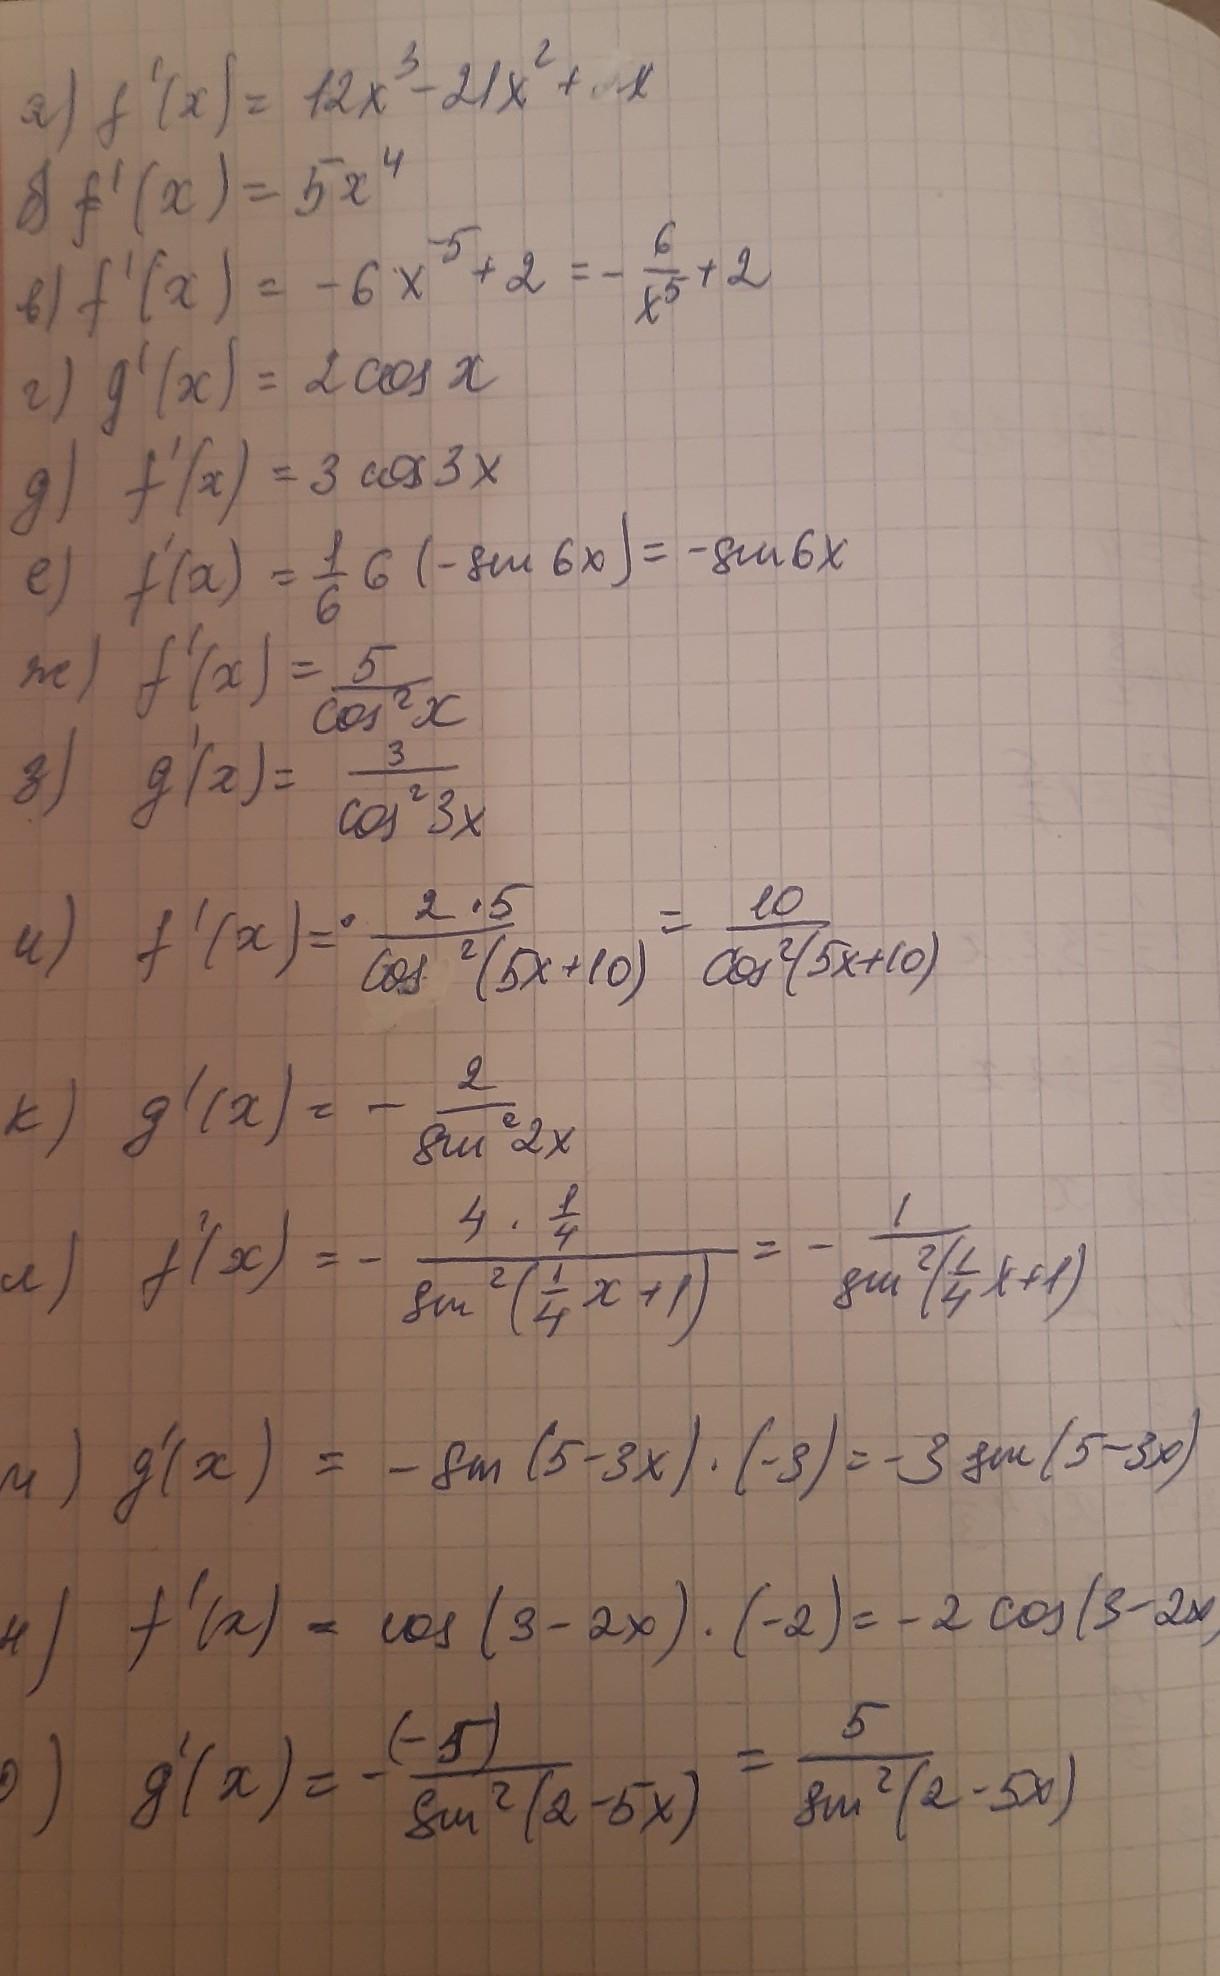 а) f'(x) = 12x³ - 21x² + x
б) f'(x) = 5x⁴
в) f'(x) = -6·x⁻⁵ + 2 = - 6/x⁵ + 2
г) g'(x) = 2 cos x
д) f'(x) = 3 cos 3x
е) f'(x) = 1/6 6 (-sin 6x) = -sin 6x
ж) f'(x) = 5/cos²x
з) g'(x) = 3/cos²3x
и) f'(x) = 2·5/cos²(5x+10) = 10/cos²(5x+10)
к) g'(x) = - 2/sin²2x
л) f'(x) = - 4·1/4/sin²(1/4 x+1) = - 1/sin²(1/4 x+1)
м) g'(x) = - sin(5-3x)·(-3) = -3 sin(5-3x)
н) f'(x) = cos(3-2x)·(-2) = -2 cos(3-2x)
о) g'(x) = - (-5)/sin²(2-5x) = 5/sin²(2-5x)